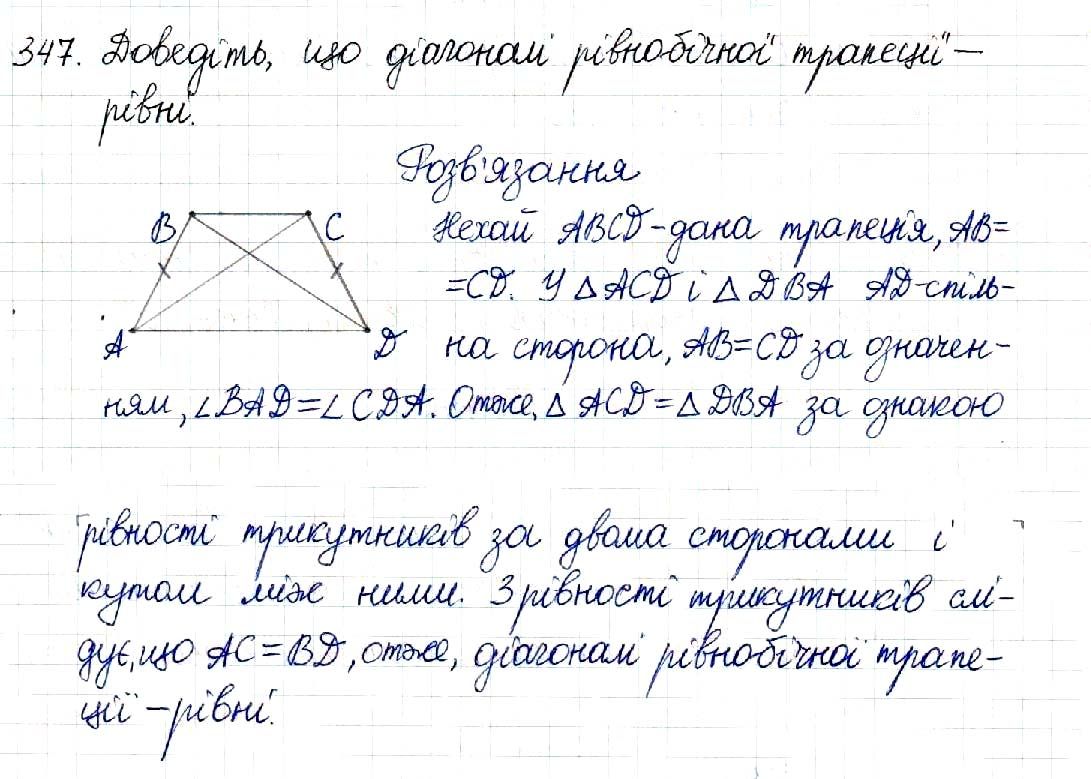 347. Доведіть, що діагоналі рівнобічної трапеції –
рівні.
Розв'язання
B C
A D
Нехай ABCD – дана трапеція, AB=
=CD. У △ ACD і △ DBA AD – спіль-
на сторона, AB=CD за означен-
ням, ∠BAD=∠CDA. Отже, △ ACD=△ DBA за ознакою
рівності трикутників за двома сторонами і
кутом між ними. З рівності трикутників слі-
дує, що AC=BD, отже, діагоналі рівнобічної трапе-
ції – рівні.